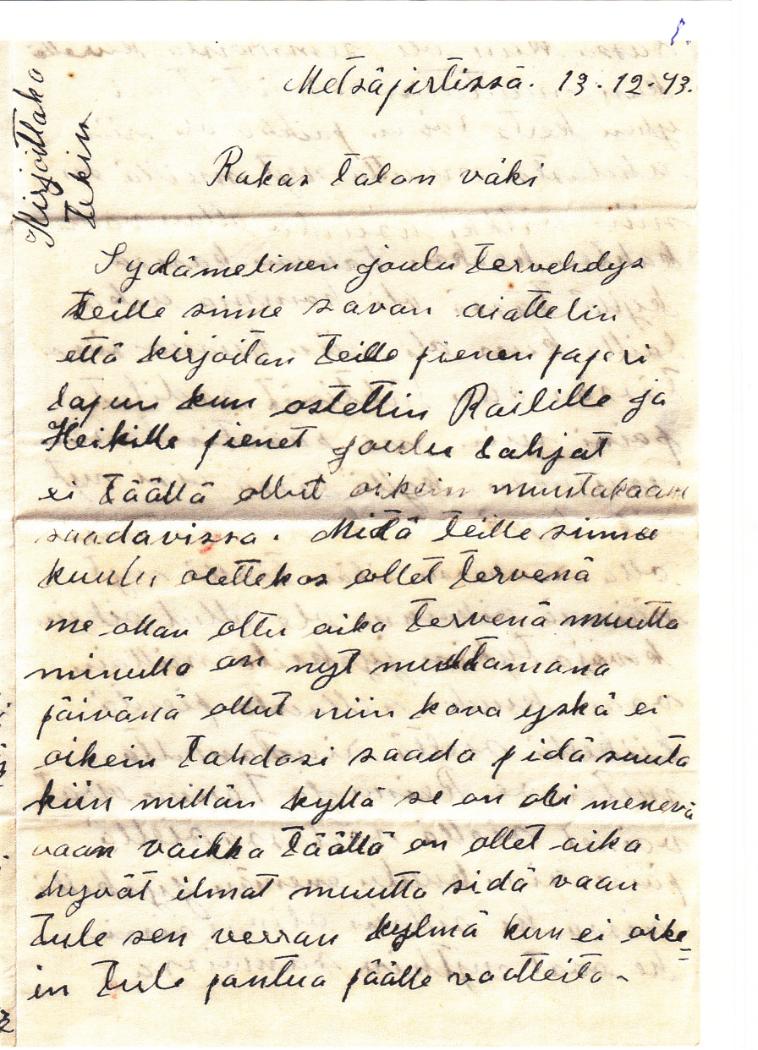 Metsäpirtissä. 13.12.43.
Kirjoittaka
tekin
Rakas talon väki
Sydämelinen joulu tervehdys
teille sinne savan aiattelin
että kirjoitan teille pienen paperi
lapun kun ostettin Railille ja
Heikille pienet joulu lahjat
ei täällä ollut oikein muutakaan
saadavissa. Mitä teille sinne
kuulu olettekos ollet tervenä
me ollan oltu aika tervenä muutta
minulla on nyt muuttamana
päivänä ollut niin kova yskä ei
oikein tahdosi saada pidä suuta
kiin millän kyllä se on ohi menevä
vaan vaikka täällä on ollet aika
hyvät ilmat muutta sidä vaan
tule sen verran kylmä kun ei oike=
in tule pantua päälle vaatteita-